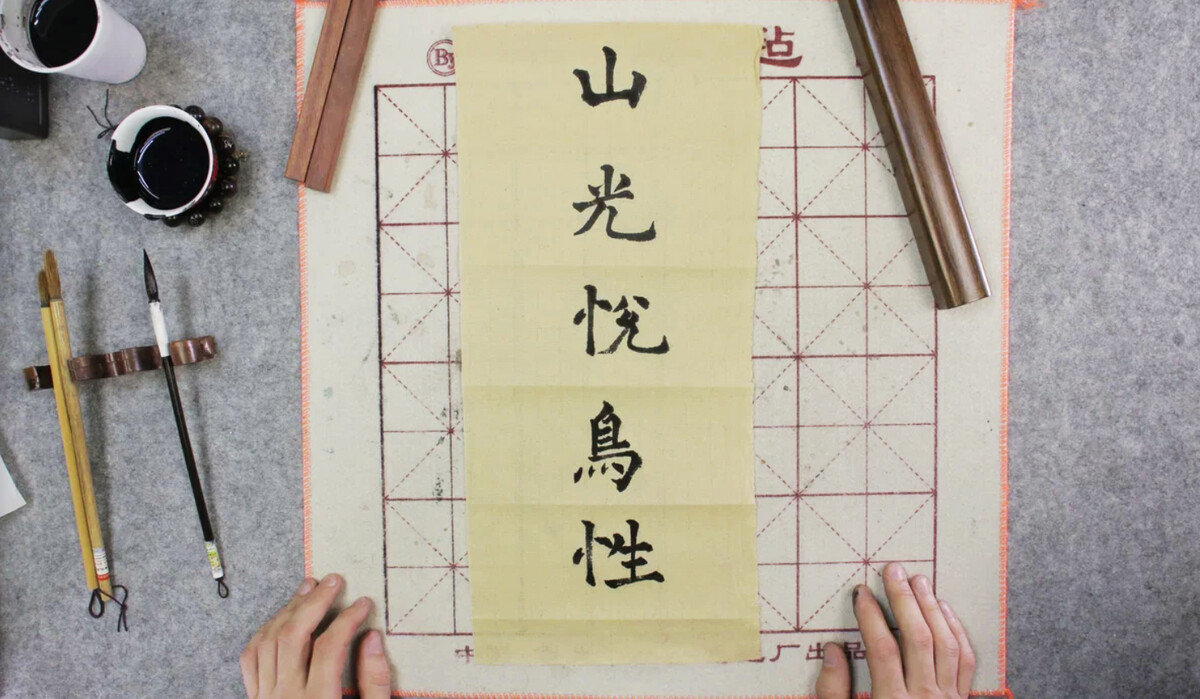 山光悅鳥性
By
毡
中
厂出品